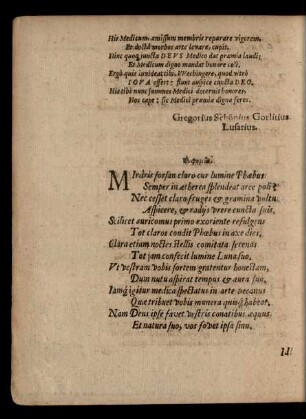 Hic Medicum amissum membris reparare vigorem,
Et doctâ morbos arte levare, cupit.
Hinc quoq; juncta DEUS Medico dat præmia laudi;
Et Medicum digno mandat honore coli.
Ergò quie invideat tibi, Wechingere, quod vitrò
JOVA offert? fiunt auspice cuncta DEO.
Hic tibi nunc summos Medici decernit honores.
Nos cape; sic Medici præmia digna feres.
Gregorius Schönius Gorlitius
Lusatius.
Miraris forsan claro cur lumine Phœbus
Semper in ætherea splendeat arce poli?
Nec cesset claro fruges & gramina vultu
Aspicere, & radijs urere cuncta suis.
Scilicet auricomus primo exoriente refulgens
Tot claros condit Phœbus in axe dies.
Clara etiam noctes stellis comitata serenas
Tot jam consecit lumine Luna suo,
Vt vestram vobis sortem gratentur honestam,
Dum nutu aspirat tempus & aura suo.
Jamq; igitur medica spectatus in arte Decanus
Quæ tribuet vobis munera quisq; habeat.
Nam Deus ipse favet vestris conatibus æquus,
Et natura suo, vos fovet ipsa sinu.